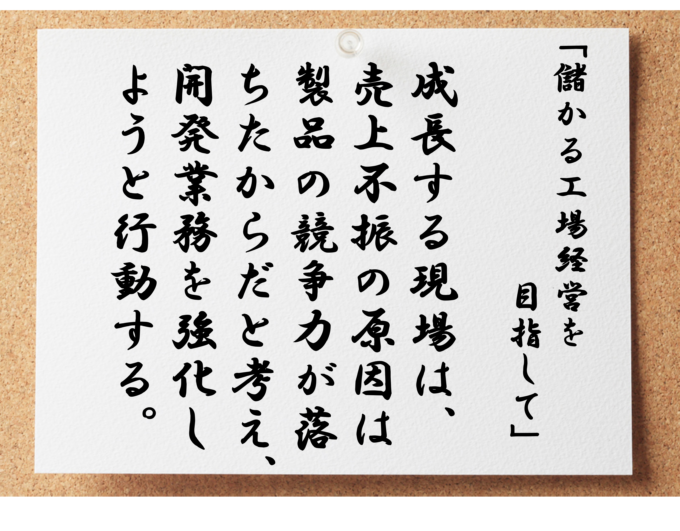 「儲かる工場経営を
目指して」
成長する現場は、
売上不振の原因は
製品の競争力が落
ちたからだと考え、
開発業務を強化し
ようと行動する。